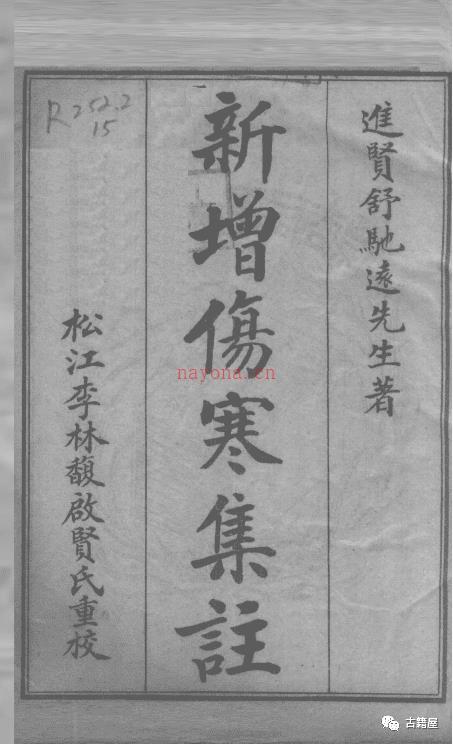 進賢舒馳遠先生著
新增傷寒集註
松江李林馥啟賢氏重校
R252.2
15
nayona.cn
古籍屋